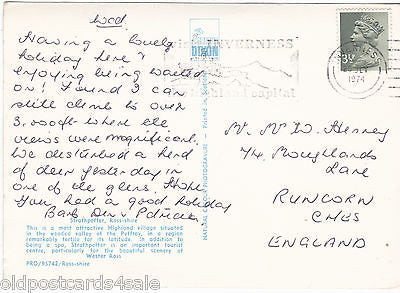 Wed.
Having a lovely
holiday here &
enjoying being waited
on! Found I can
still climb to over
3,000ft where the
views were magnificent.
We disturbed a herd
of deer yesterday in
one of the glens. Hope
you had a good holiday
Barb Den & Patricia
Strathpeffer, Ross-shire
This is a most attractive Highland village situated
in the wooded valley of the Peffrey, in a region
remarkably fertile for its latitude. In addition to
being a spa, Strathpeffer is an important tourist
centre, particularly for the beautiful scenery of
Wester Ross
PRD/95742/Ross-shire
DIXON
NATURAL COLOUR PHOTOGRAPH
Printed in
INVERNESS
highland capital
3½
1974
74, Moughlands
Lane
RUNCORN
CHES
ENGLAND
© oldpostcards4sale